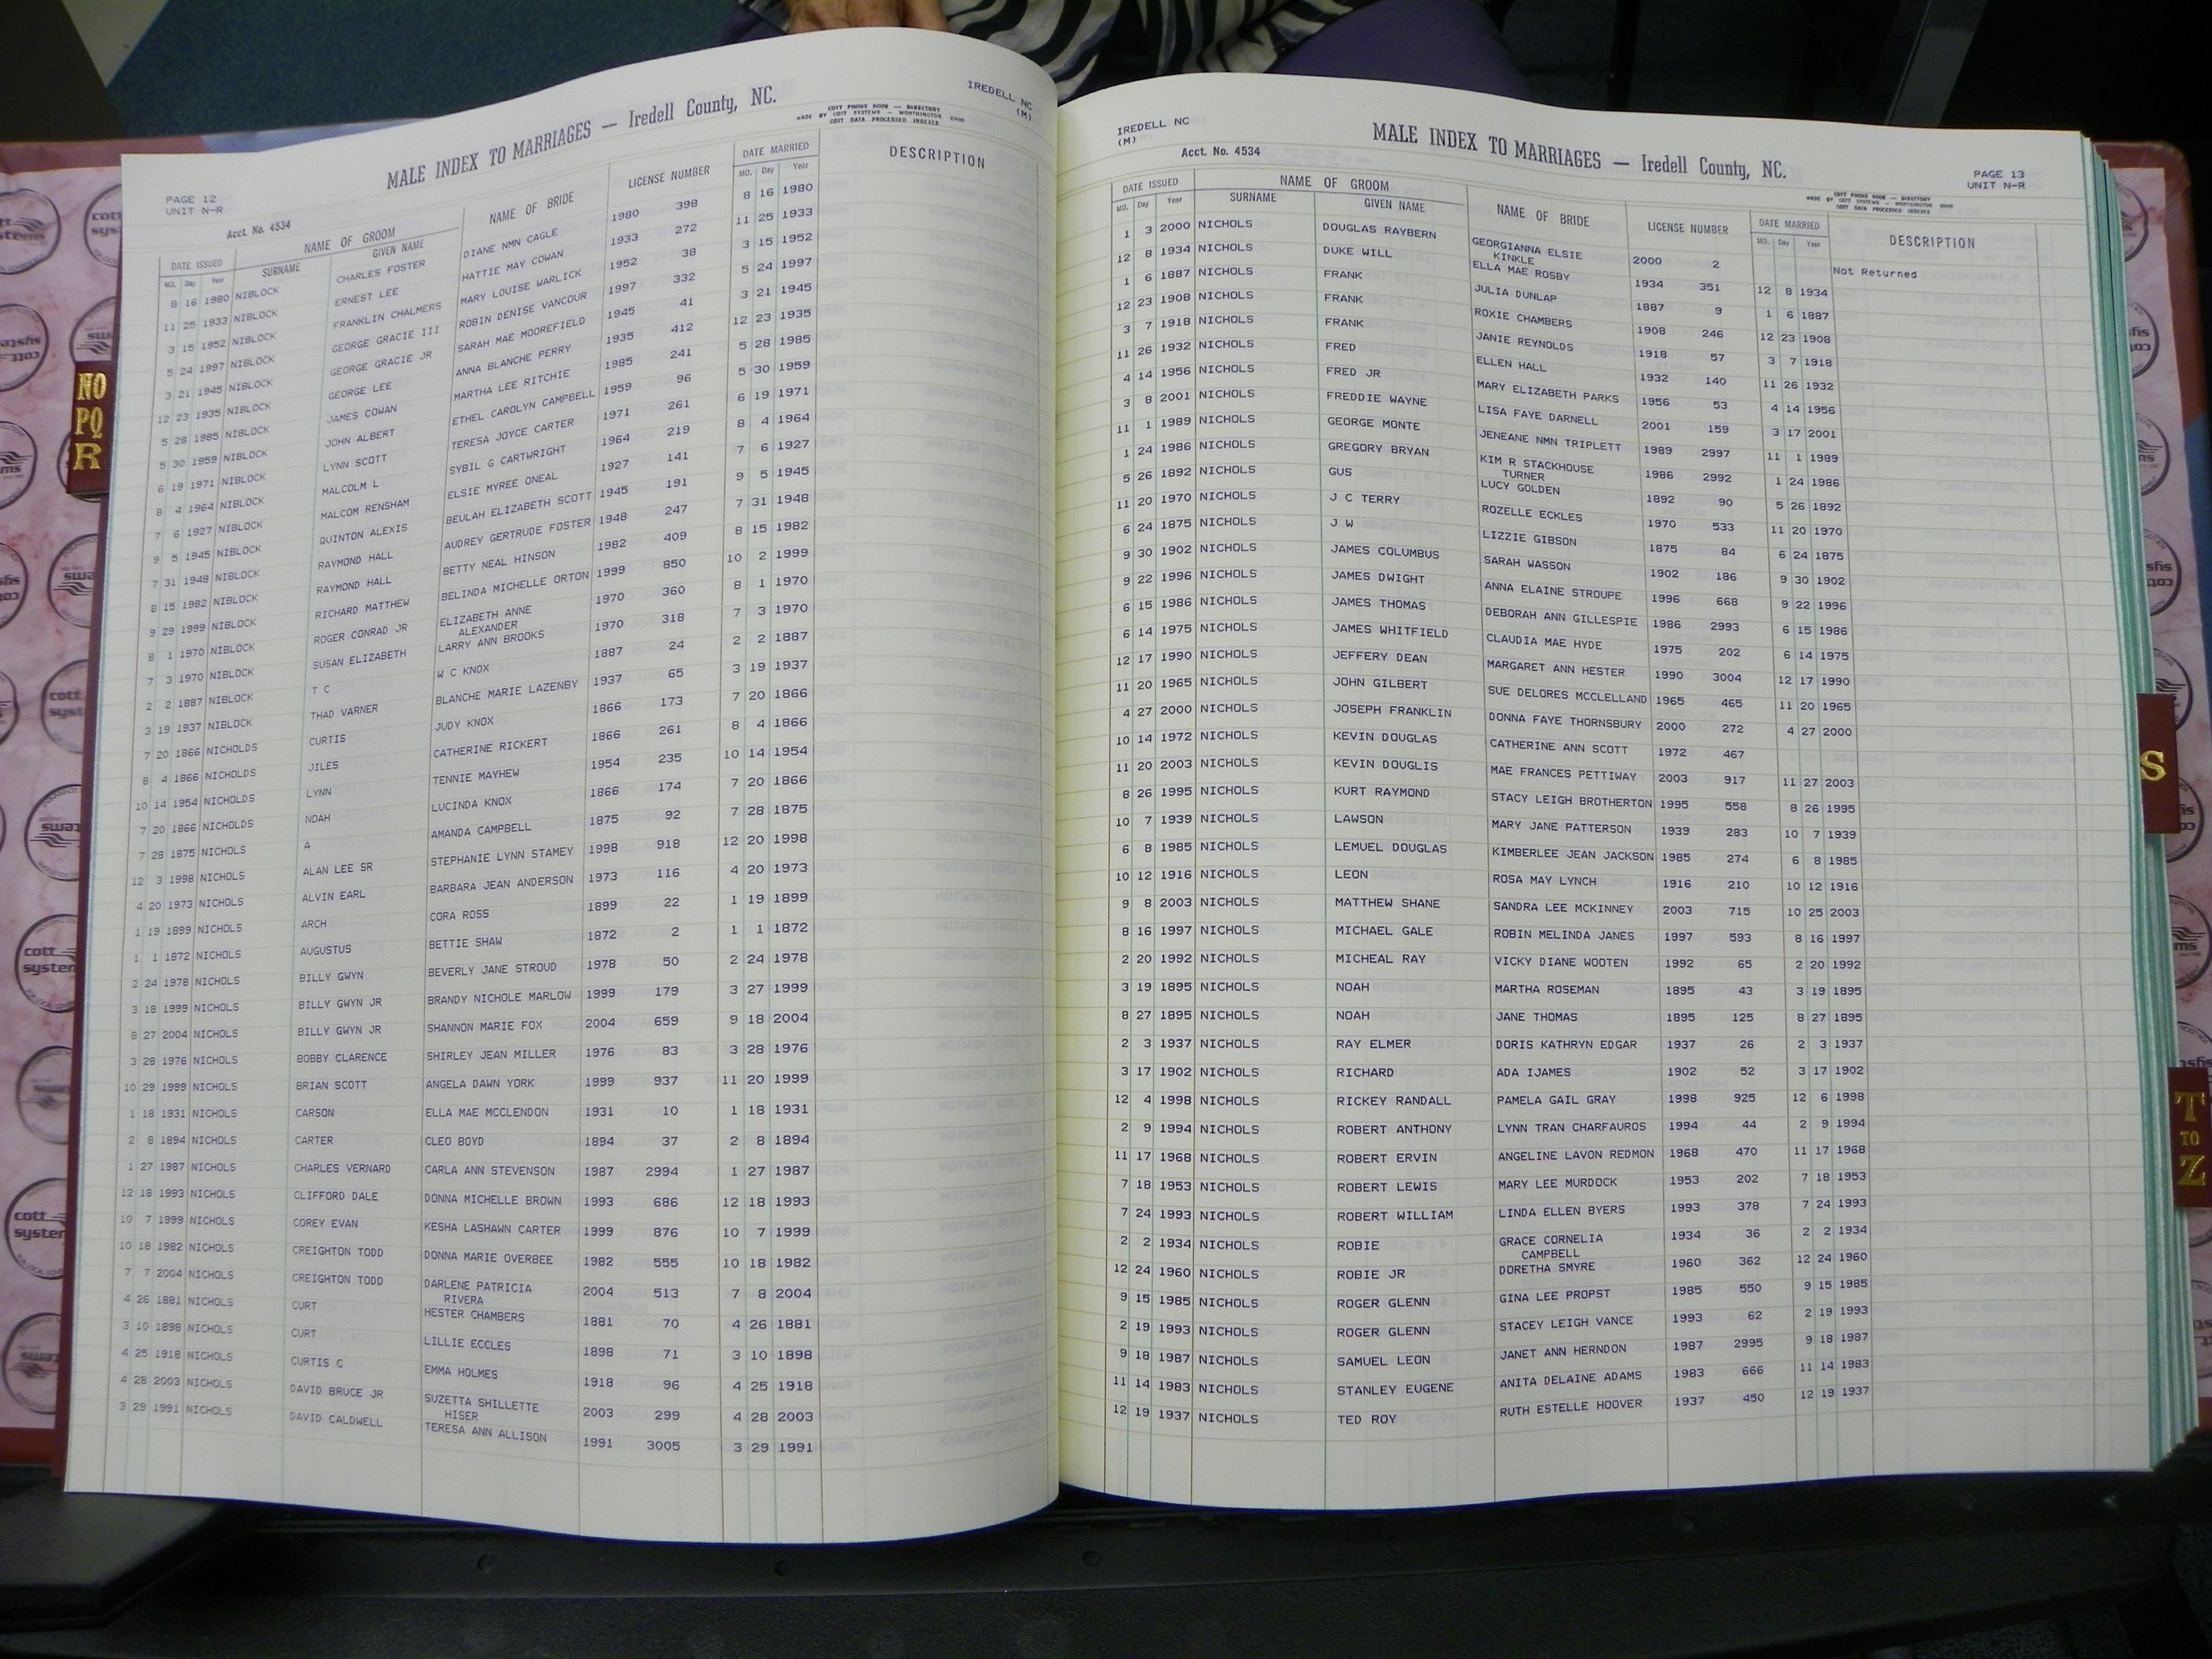 MALE INDEX TO MARRIAGES — Iredell County, NC.
IREDELL NC
(M)
COTT PHONE BOOK — DIRECTORY
MADE BY COTT SYSTEMS — WORTHINGTON OHIO
COTT DATA PROCESSED INDEXES
PAGE 12
UNIT N-R
Acct. No. 4534
DATE ISSUED NAME OF GROOM NAME OF BRIDE LICENSE NUMBER DATE MARRIED DESCRIPTION
MO. Day Year SURNAME GIVEN NAME MO. Day Year
8 16 1980 NIBLOCK CHARLES FOSTER DIANE NMN CAGLE 1980 398 8 16 1980
11 25 1933 NIBLOCK ERNEST LEE HATTIE MAY COWAN 1933 272 11 25 1933
3 15 1952 NIBLOCK FRANKLIN CHALMERS MARY LOUISE WARLICK 1952 38 3 15 1952
5 24 1997 NIBLOCK GEORGE GRACIE III ROBIN DENISE VANCOUR 1997 332 5 24 1997
3 21 1945 NIBLOCK GEORGE GRACIE JR SARAH MAE MOOREFIELD 1945 41 3 21 1945
12 23 1935 NIBLOCK GEORGE LEE ANNA BLANCHE PERRY 1935 412 12 23 1935
5 28 1985 NIBLOCK JAMES COWAN MARTHA LEE RITCHIE 1985 241 5 28 1985
5 30 1959 NIBLOCK JOHN ALBERT ETHEL CAROLYN CAMPBELL 1959 96 5 30 1959
6 19 1971 NIBLOCK LYNN SCOTT TERESA JOYCE CARTER 1971 261 6 19 1971
8 4 1964 NIBLOCK MALCOLM L SYBIL G CARTWRIGHT 1964 219 8 4 1964
7 6 1927 NIBLOCK MALCOM RENSHAM ELSIE MYREE ONEAL 1927 141 7 6 1927
9 5 1945 NIBLOCK QUINTON ALEXIS BEULAH ELIZABETH SCOTT 1945 191 9 5 1945
7 31 1948 NIBLOCK RAYMOND HALL AUDREY GERTRUDE FOSTER 1948 247 7 31 1948
8 15 1982 NIBLOCK RAYMOND HALL BETTY NEAL HINSON 1982 409 8 15 1982
9 29 1999 NIBLOCK RICHARD MATTHEW BELINDA MICHELLE ORTON 1999 850 10 2 1999
8 1 1970 NIBLOCK ROGER CONRAD JR ELIZABETH ANNE 1970 360 8 1 1970
ALEXANDER
7 3 1970 NIBLOCK SUSAN ELIZABETH LARRY ANN BROOKS 1970 318 7 3 1970
2 2 1887 NIBLOCK T C W C KNOX 1887 24 2 2 1887
3 19 1937 NIBLOCK THAD VARNER BLANCHE MARIE LAZENBY 1937 65 3 19 1937
7 20 1866 NICHOLDS CURTIS JUDY KNOX 1866 173 7 20 1866
8 4 1866 NICHOLDS JILES CATHERINE RICKERT 1866 261 8 4 1866
10 14 1954 NICHOLDS LYNN TENNIE MAYHEW 1954 235 10 14 1954
7 20 1866 NICHOLDS NOAH LUCINDA KNOX 1866 174 7 20 1866
7 28 1875 NICHOLS A AMANDA CAMPBELL 1875 92 7 28 1875
12 3 1998 NICHOLS ALAN LEE SR STEPHANIE LYNN STAMEY 1998 918 12 20 1998
4 20 1973 NICHOLS ALVIN EARL BARBARA JEAN ANDERSON 1973 116 4 20 1973
1 19 1899 NICHOLS ARCH CORA ROSS 1899 22 1 19 1899
1 1 1872 NICHOLS AUGUSTUS BETTIE SHAW 1872 2 1 1 1872
2 24 1978 NICHOLS BILLY GWYN BEVERLY JANE STROUD 1978 50 2 24 1978
3 18 1999 NICHOLS BILLY GWYN JR BRANDY NICHOLE MARLOW 1999 179 3 27 1999
8 27 2004 NICHOLS BILLY GWYN JR SHANNON MARIE FOX 2004 659 9 18 2004
3 28 1976 NICHOLS BOBBY CLARENCE SHIRLEY JEAN MILLER 1976 83 3 28 1976
10 29 1999 NICHOLS BRIAN SCOTT ANGELA DAWN YORK 1999 937 11 20 1999
1 18 1931 NICHOLS CARSON ELLA MAE MCCLENDON 1931 10 1 18 1931
2 8 1894 NICHOLS CARTER CLEO BOYD 1894 37 2 8 1894
1 27 1987 NICHOLS CHARLES VERNARD CARLA ANN STEVENSON 1987 2994 1 27 1987
12 18 1993 NICHOLS CLIFFORD DALE DONNA MICHELLE BROWN 1993 686 12 18 1993
10 7 1999 NICHOLS COREY EVAN KESHA LASHAWN CARTER 1999 876 10 7 1999
10 18 1982 NICHOLS CREIGHTON TODD DONNA MARIE OVERBEE 1982 555 10 18 1982
7 7 2004 NICHOLS CREIGHTON TODD DARLENE PATRICIA 2004 513 7 8 2004
RIVERA
4 26 1881 NICHOLS CURT HESTER CHAMBERS 1881 70 4 26 1881
3 10 1898 NICHOLS CURT LILLIE ECCLES 1898 71 3 10 1898
4 25 1918 NICHOLS CURTIS C EMMA HOLMES 1918 96 4 25 1918
4 28 2003 NICHOLS DAVID BRUCE JR SUZETTA SHILLETTE 2003 299 4 28 2003
HISER
3 29 1991 NICHOLS DAVID CALDWELL TERESA ANN ALLISON 1991 3005 3 29 1991
IREDELL NC
(M)
MALE INDEX TO MARRIAGES — Iredell County, NC.
Acct. No. 4534
PAGE 13
UNIT N-R
COTT PHONE BOOK — DIRECTORY
MADE BY COTT SYSTEMS — WORTHINGTON OHIO
COTT DATA PROCESSED INDEXES
DATE ISSUED NAME OF GROOM NAME OF BRIDE LICENSE NUMBER DATE MARRIED DESCRIPTION
MO. Day Year SURNAME GIVEN NAME MO. Day Year
1 3 2000 NICHOLS DOUGLAS RAYBERN GEORGIANNA ELSIE 2000 2 Not Returned
KINKLE
12 8 1934 NICHOLS DUKE WILL ELLA MAE ROSBY 1934 351 12 8 1934
1 6 1887 NICHOLS FRANK JULIA DUNLAP 1887 9 1 6 1887
12 23 1908 NICHOLS FRANK ROXIE CHAMBERS 1908 246 12 23 1908
3 7 1918 NICHOLS FRANK JANIE REYNOLDS 1918 57 3 7 1918
11 26 1932 NICHOLS FRED ELLEN HALL 1932 140 11 26 1932
4 14 1956 NICHOLS FRED JR MARY ELIZABETH PARKS 1956 53 4 14 1956
3 8 2001 NICHOLS FREDDIE WAYNE LISA FAYE DARNELL 2001 159 3 17 2001
11 1 1989 NICHOLS GEORGE MONTE JENEANE NMN TRIPLETT 1989 2997 11 1 1989
1 24 1986 NICHOLS GREGORY BRYAN KIM R STACKHOUSE 1986 2992 1 24 1986
TURNER
5 26 1892 NICHOLS GUS LUCY GOLDEN 1892 90 5 26 1892
11 20 1970 NICHOLS J C TERRY ROZELLE ECKLES 1970 533 11 20 1970
6 24 1875 NICHOLS J W LIZZIE GIBSON 1875 84 6 24 1875
9 30 1902 NICHOLS JAMES COLUMBUS SARAH WASSON 1902 186 9 30 1902
9 22 1996 NICHOLS JAMES DWIGHT ANNA ELAINE STROUPE 1996 668 9 22 1996
6 15 1986 NICHOLS JAMES THOMAS DEBORAH ANN GILLESPIE 1986 2993 6 15 1986
6 14 1975 NICHOLS JAMES WHITFIELD CLAUDIA MAE HYDE 1975 202 6 14 1975
12 17 1990 NICHOLS JEFFERY DEAN MARGARET ANN HESTER 1990 3004 12 17 1990
11 20 1965 NICHOLS JOHN GILBERT SUE DELORES MCCLELLAND 1965 465 11 20 1965
4 27 2000 NICHOLS JOSEPH FRANKLIN DONNA FAYE THORNSBURY 2000 272 4 27 2000
10 14 1972 NICHOLS KEVIN DOUGLAS CATHERINE ANN SCOTT 1972 467
11 20 2003 NICHOLS KEVIN DOUGLIS MAE FRANCES PETTIWAY 2003 917 11 27 2003
8 26 1995 NICHOLS KURT RAYMOND STACY LEIGH BROTHERTON 1995 558 8 26 1995
10 7 1939 NICHOLS LAWSON MARY JANE PATTERSON 1939 283 10 7 1939
6 8 1985 NICHOLS LEMUEL DOUGLAS KIMBERLEE JEAN JACKSON 1985 274 6 8 1985
10 12 1916 NICHOLS LEON ROSA MAY LYNCH 1916 210 10 12 1916
9 8 2003 NICHOLS MATTHEW SHANE SANDRA LEE MCKINNEY 2003 715 10 25 2003
8 16 1997 NICHOLS MICHAEL GALE ROBIN MELINDA JANES 1997 593 8 16 1997
2 20 1992 NICHOLS MICHEAL RAY VICKY DIANE WOOTEN 1992 65 2 20 1992
3 19 1895 NICHOLS NOAH MARTHA ROSEMAN 1895 43 3 19 1895
8 27 1895 NICHOLS NOAH JANE THOMAS 1895 125 8 27 1895
2 3 1937 NICHOLS RAY ELMER DORIS KATHRYN EDGAR 1937 26 2 3 1937
3 17 1902 NICHOLS RICHARD ADA IJAMES 1902 52 3 17 1902
12 4 1998 NICHOLS RICKEY RANDALL PAMELA GAIL GRAY 1998 925 12 6 1998
2 9 1994 NICHOLS ROBERT ANTHONY LYNN TRAN CHARFAUROS 1994 44 2 9 1994
11 17 1968 NICHOLS ROBERT ERVIN ANGELINE LAVON REDMON 1968 470 11 17 1968
7 18 1953 NICHOLS ROBERT LEWIS MARY LEE MURDOCK 1953 202 7 18 1953
7 24 1993 NICHOLS ROBERT WILLIAM LINDA ELLEN BYERS 1993 378 7 24 1993
2 2 1934 NICHOLS ROBIE GRACE CORNELIA 1934 36 2 2 1934
CAMPBELL
12 24 1960 NICHOLS ROBIE JR DORETHA SMYRE 1960 362 12 24 1960
9 15 1985 NICHOLS ROGER GLENN GINA LEE PROPST 1985 550 9 15 1985
2 19 1993 NICHOLS ROGER GLENN STACEY LEIGH VANCE 1993 62 2 19 1993
9 18 1987 NICHOLS SAMUEL LEON JANET ANN HERNDON 1987 2995 9 18 1987
11 14 1983 NICHOLS STANLEY EUGENE ANITA DELAINE ADAMS 1983 666 11 14 1983
12 19 1937 NICHOLS TED ROY RUTH ESTELLE HOOVER 1937 450 12 19 1937
NO
PQ
R
S
T
TO
Z
cott
systems